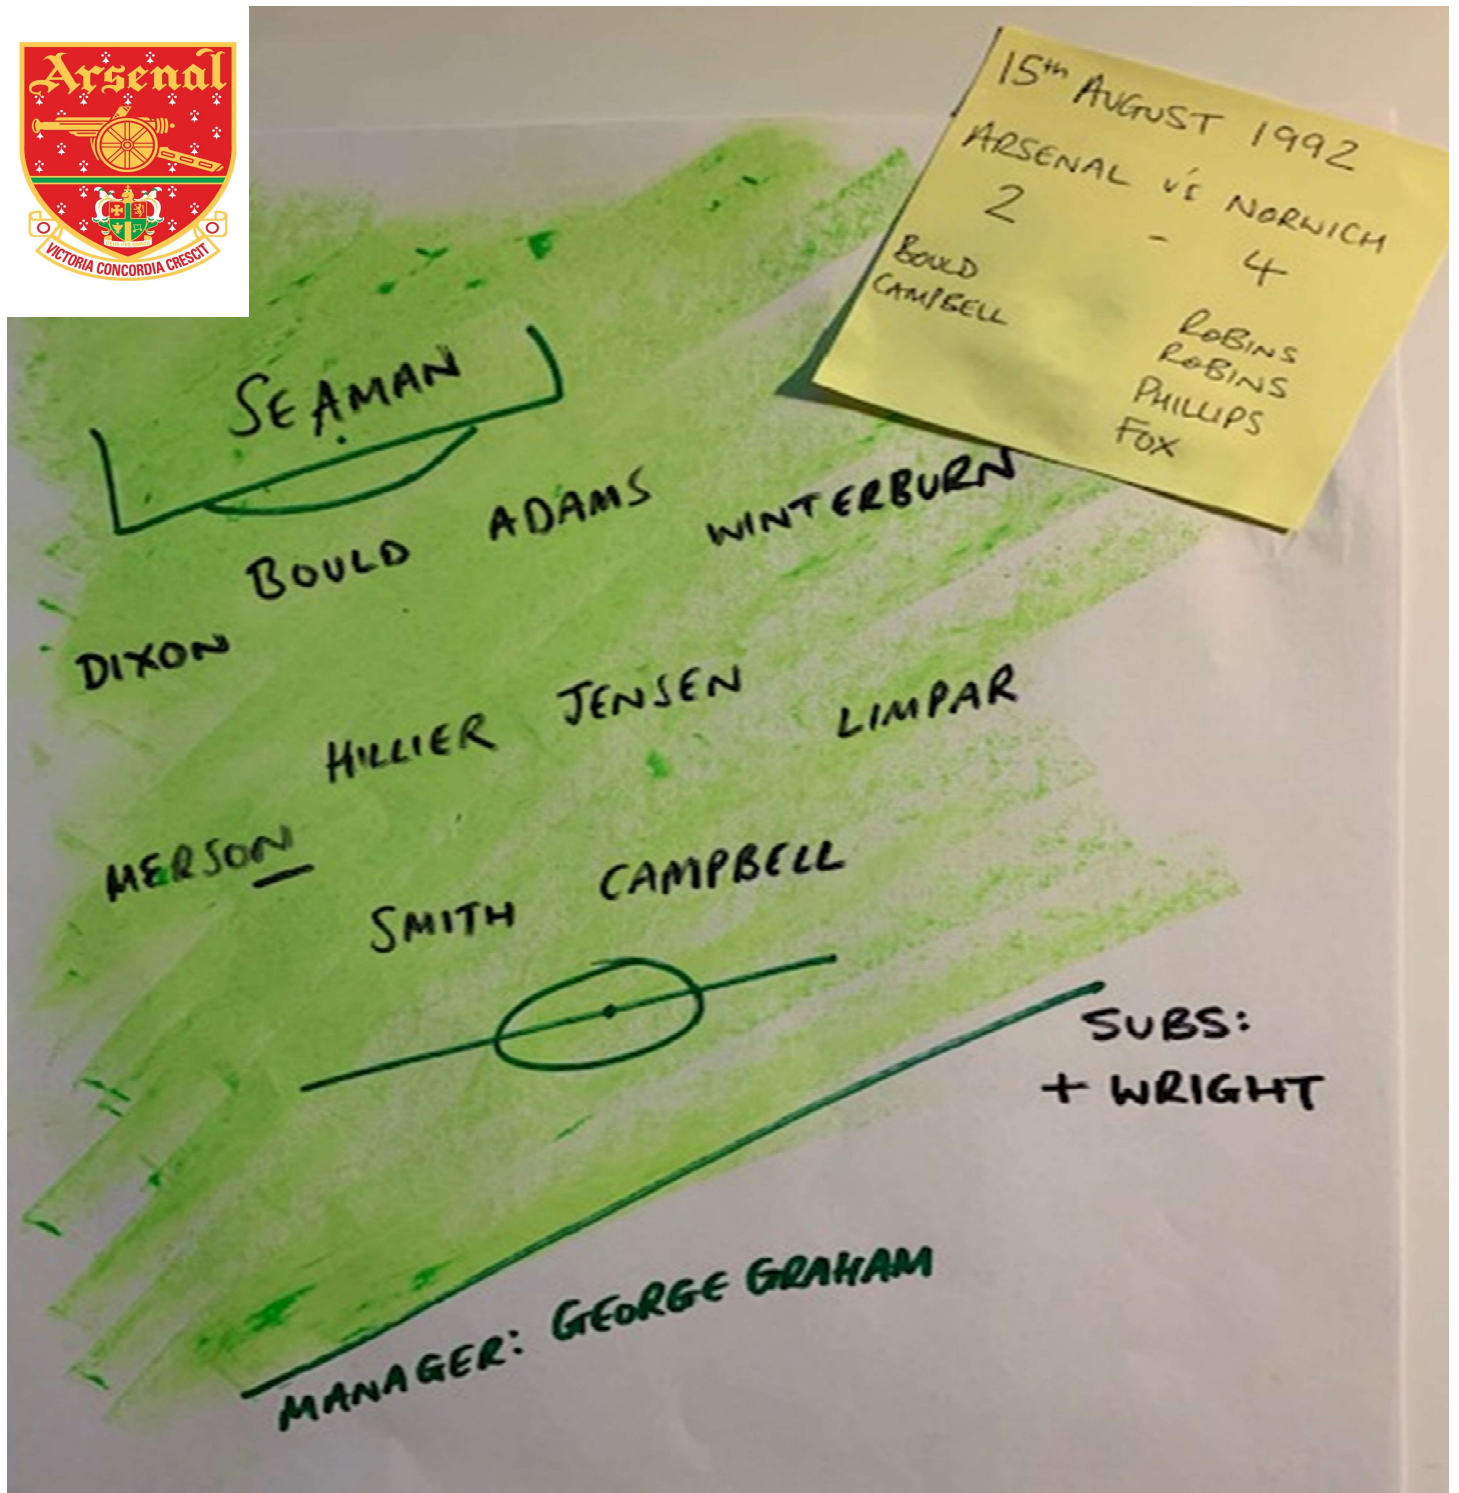 Arsenal
VICTORIA CONCORDIA CRESCIT
15th AUGUST 1992
ARSENAL VS NORWICH
2 - 4
BOULD
CAMPBELL
ROBINS
ROBINS
PHILLIPS
FOX
SEAMAN
DIXON BOULD ADAMS WINTERBURN
MERSON HILLIER JENSEN LIMPAR
SMITH CAMPBELL
SUBS:
+ WRIGHT
MANAGER: GEORGE GRAHAM